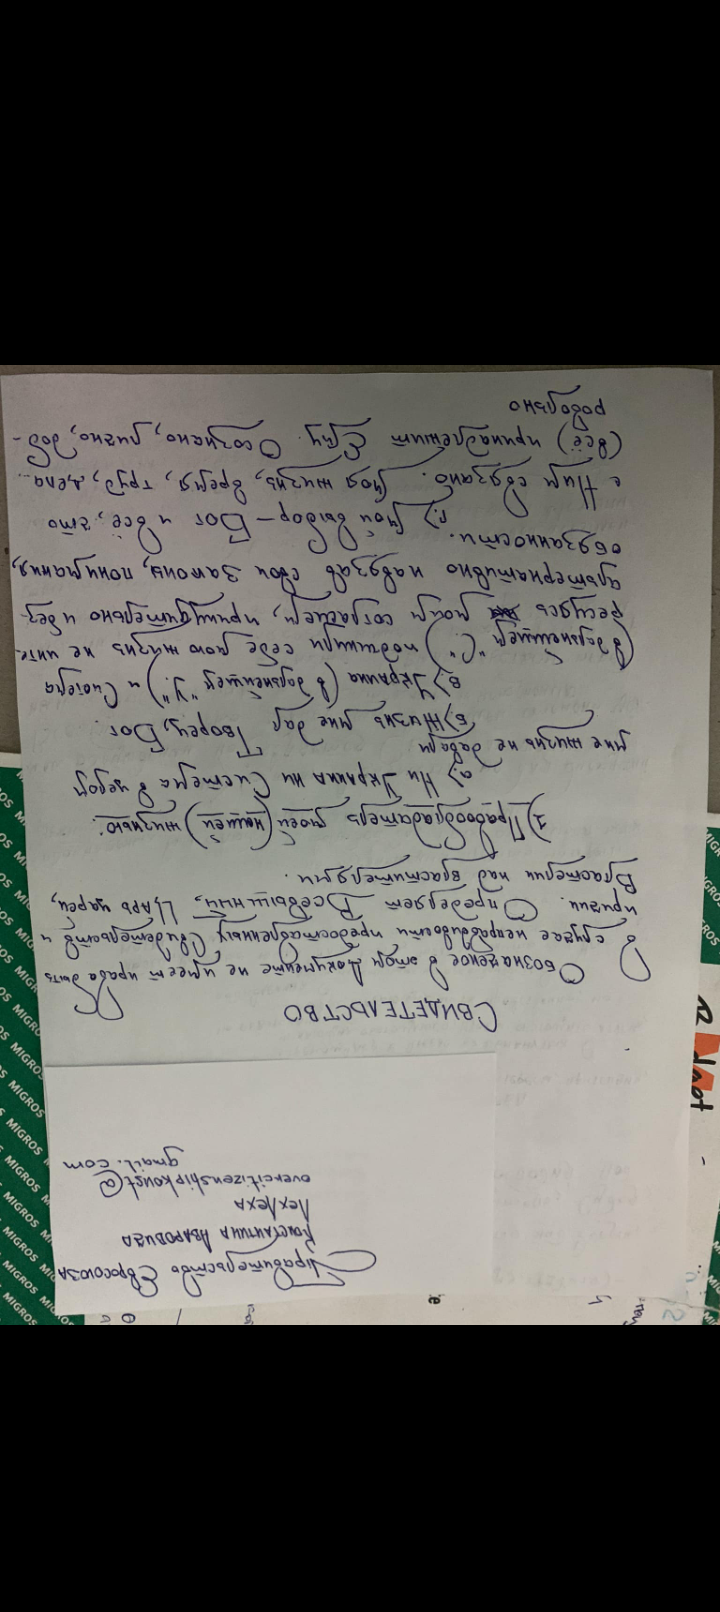 Правительство Евросоюза
Константина Аваровича
ЛехЛеха
overcitizenshipkonst@
gmail.com
СВИДЕТЕЛЬСТВО
Обозначеное в этом Документе не имеет права быть
в случае неправдивости предоставленных Свидетельств и
причин. Определяет Всевышний, Царь царей,
Властелин над властителями.
1) Правообладатель моей (нашей) жизнью.
а) Ни Украина ни Система в целом
мне жизнь не давали
б) Жизнь мне дал Творец, Бог.
в) Украина (в дальнейшем "У.") и Система
(в дальнейшем "С.") подчинили себе мою жизнь не инте-
ресуясь моим согласием, принудительно и без-
альтернативно навязав свои законы, понимания,
обязанности.
г) Мой выбор – Бог и всё, что
с Ним связано. Моя жизнь, время, труд, дела...
(всё) принадлежит Ему. Осознано, лично, доб-
ровольно
MIGROS MIGROS MIGROS MIGROS